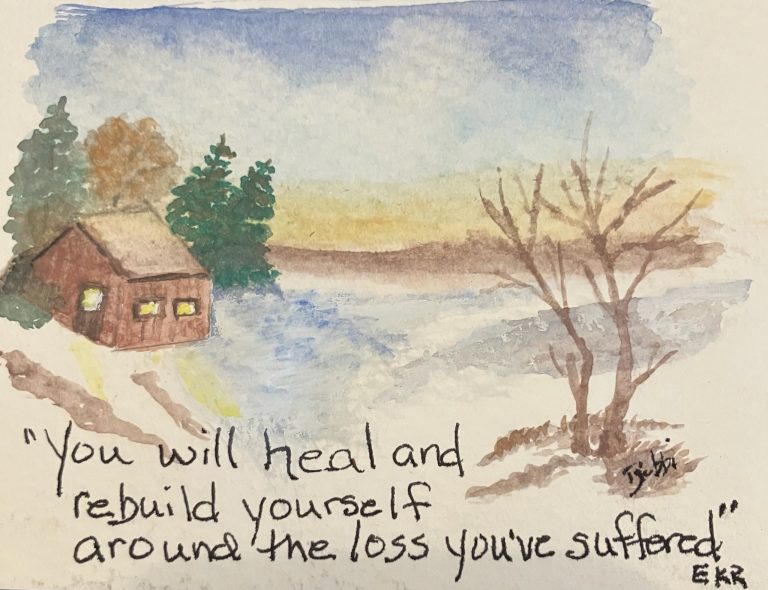 "You will heal and
rebuild yourself
around the loss you've suffered"
EKR